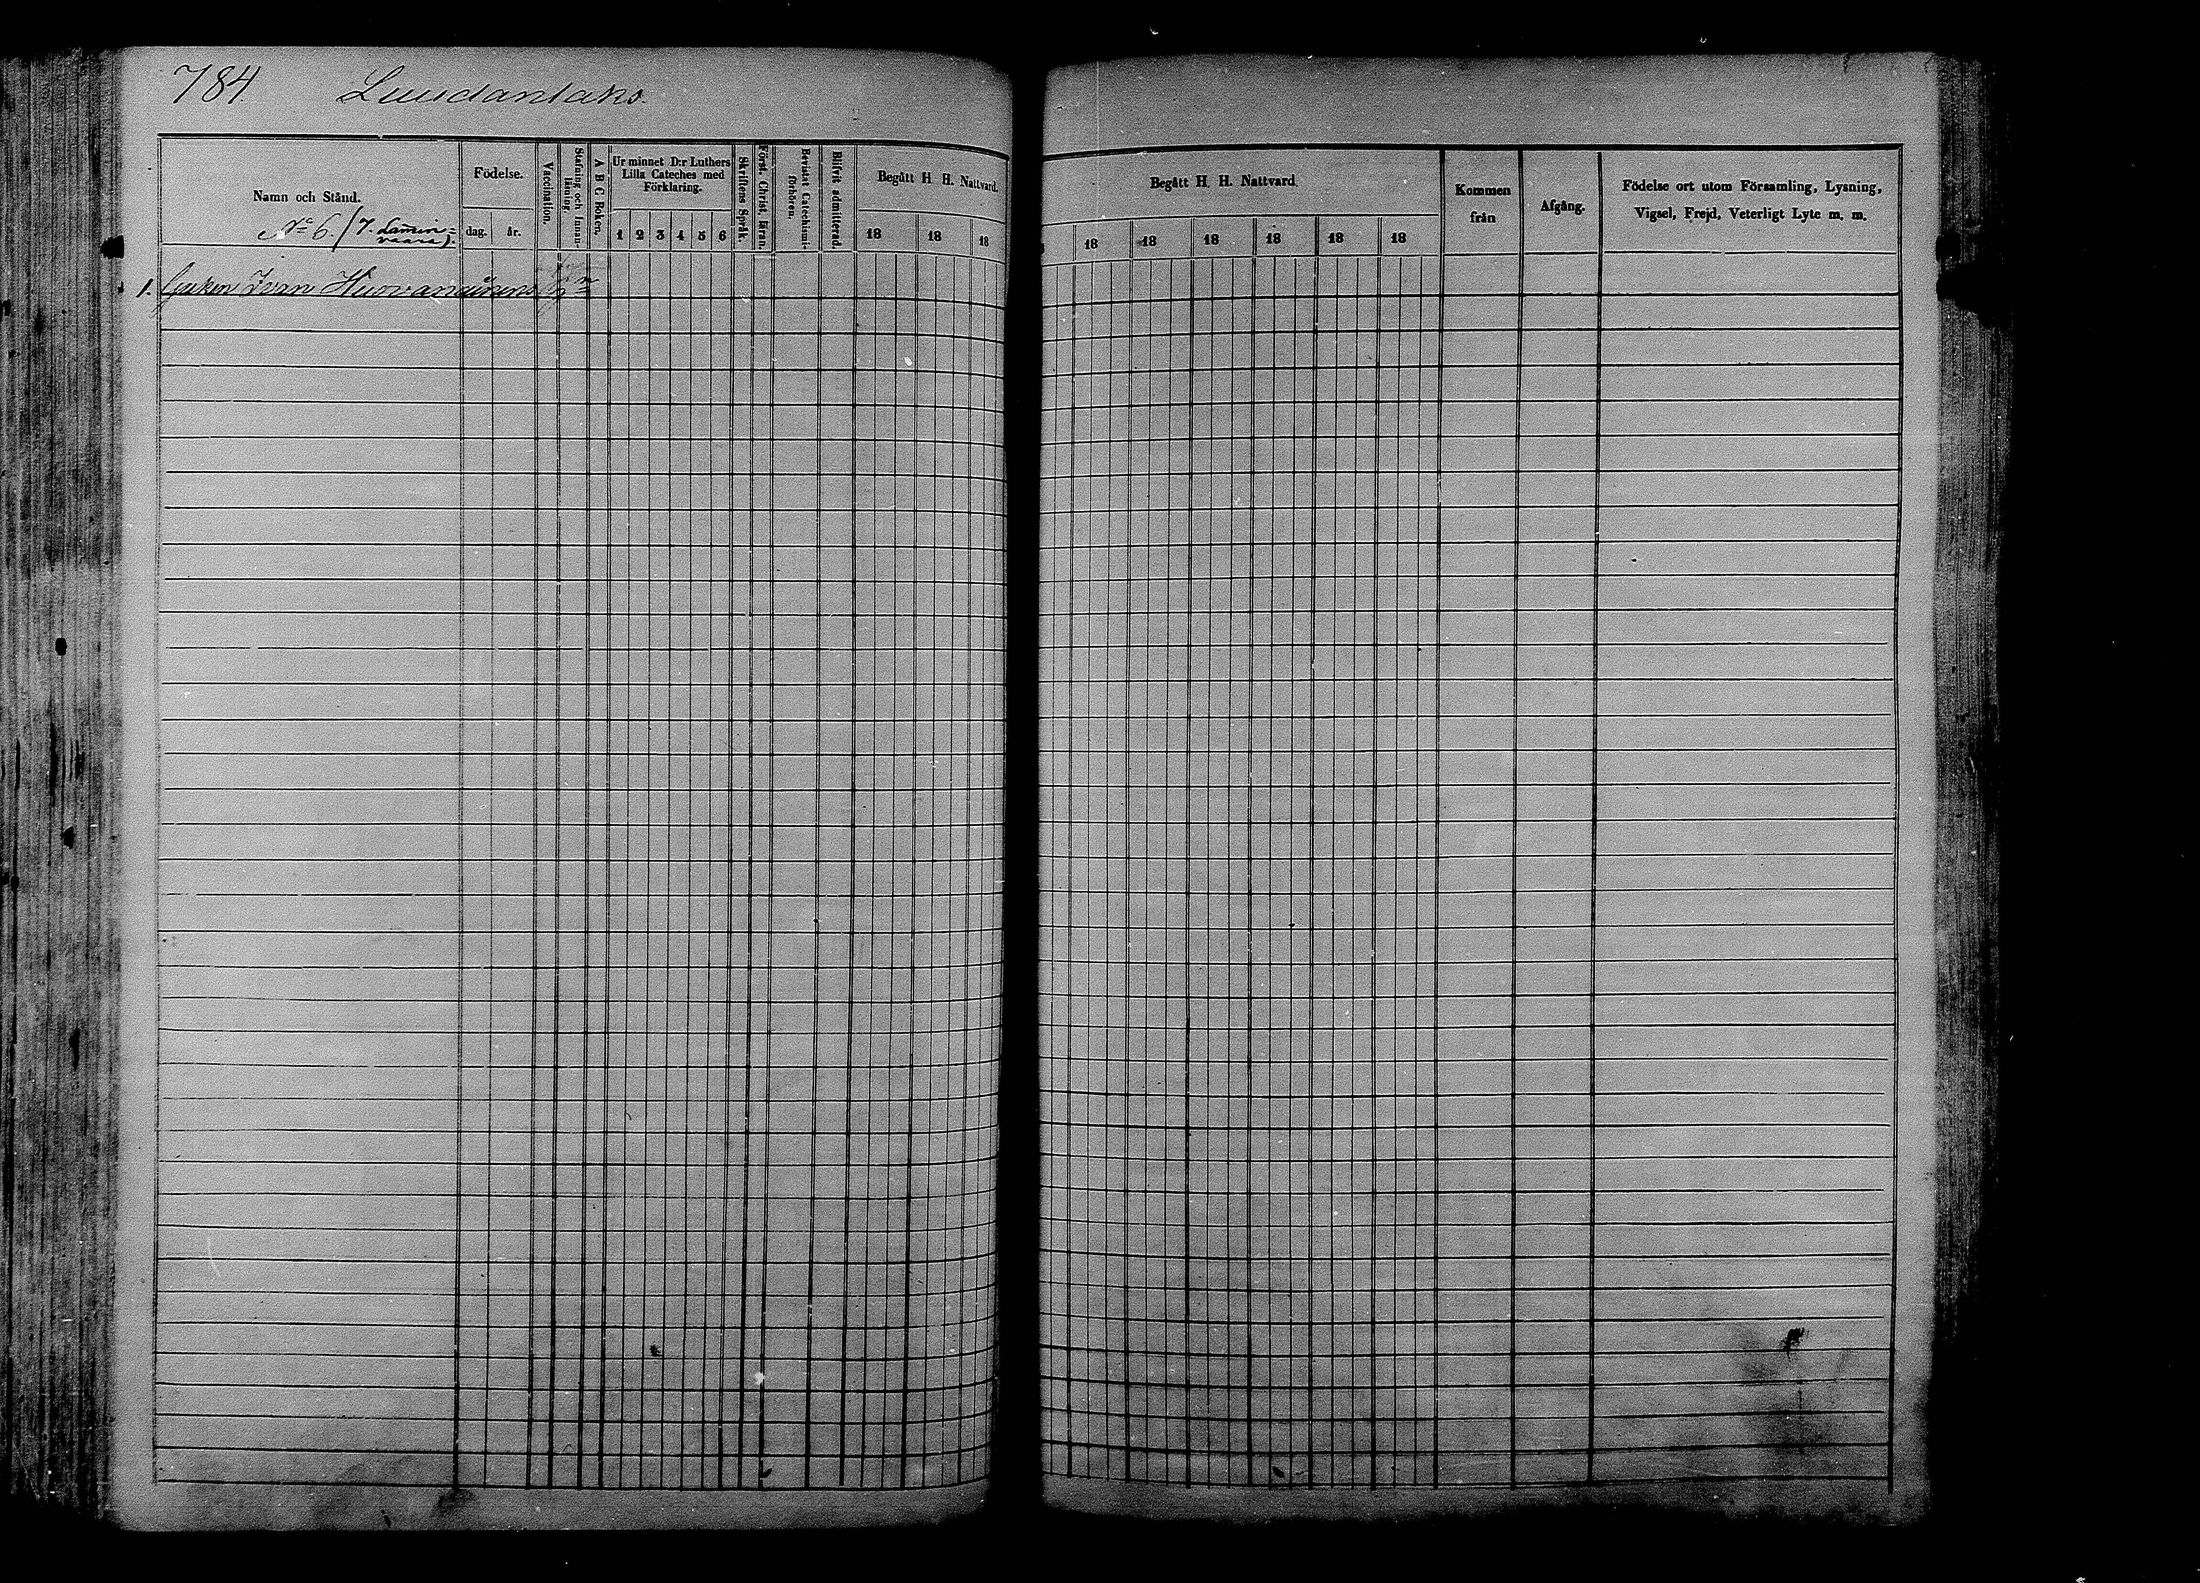 784. Luudanlaks.
Namn och Stånd.
No 6. (7. Lamin=
vaara).
Födelse.
dag. år.
Vaccination.
Stafning och Innan-
läsning.
A B C Boken.
Ur minnet D:r Luthers
Lilla Cateches med
Förklaring.
1 2 3 4 5 6
Skriftens Språk.
Först. Christ. läran.
Bevistat Catechismi-
förhören.
Blifvit admitterad.
Begått H. H. Nattvard.
18 18 18
Begått H. H. Nattvard.
18 18 18 18 18 18
Kommen
från
Afgång.
Födelse ort utom Församling, Lysning,
Vigsel, Frejd, Veterligt Lyte m. m.
1. Ivan